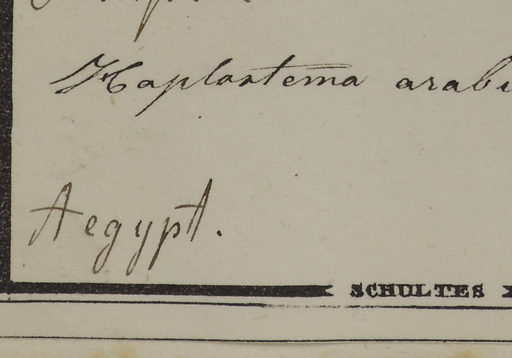 Haplostema arabi
Aegypt.
SCHULTES